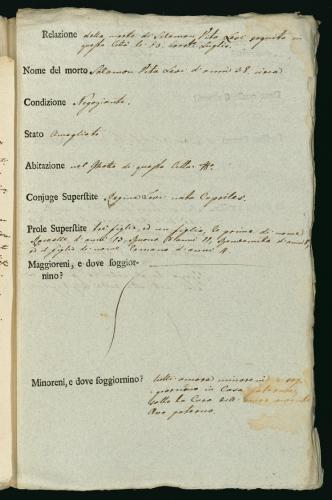 Relazione della morte di Salamon Vita Levi seguita in
questa Città li 13. corrte Luglio.
Nome del morto Salamon Vita Levi d'anni 38. circa
Condizione Negoziante.
Stato Amogliato
Abitazione nel Ghetto di questa Città
Conjuge Superstite Regina Levi nata
Prole Superstite tre figlie, ed un figlio, la prima di nome
d'anni 13. d'anni 11, d'anni 8
il figlio di nome d'anni 4
Maggioreni, e dove soggior-
nino?
Minoreni, e dove soggiornino? tutti ancora minoreni e sog-
giornino in Casa Paterna
sotto la Cura dell'
Avo paterno.